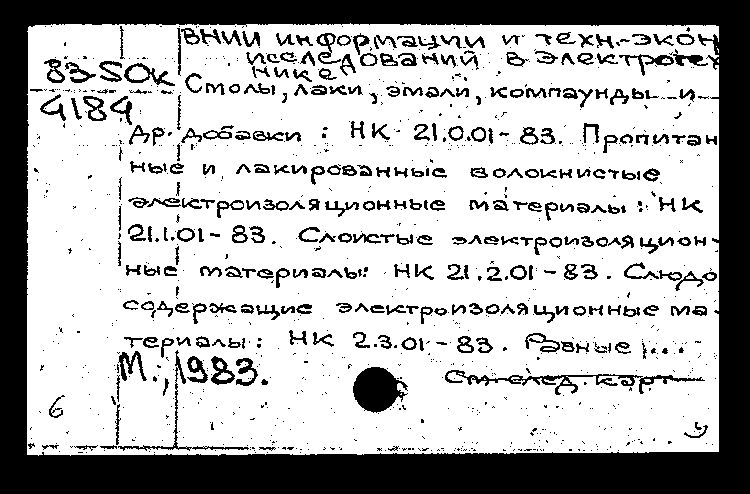 ВНИИ информации и техн.-экон
исследований в электротех
нике
83-5ОК
4184
Смолы, лаки, эмали, компаунды и
др. добавки : НК 21.0.01-83. Пропитан
ные и лакированные волокнистые
электроизоляционные материалы: НК
21.1.01-83. Слоистые электроизоляцион-
ные материалы: НК 21.2.01-83. Слюдо
содержащие электроизоляционные ма-
териалы: НК 2.3.01-83. Разные ...
М., 1983.
См. след. карт
6